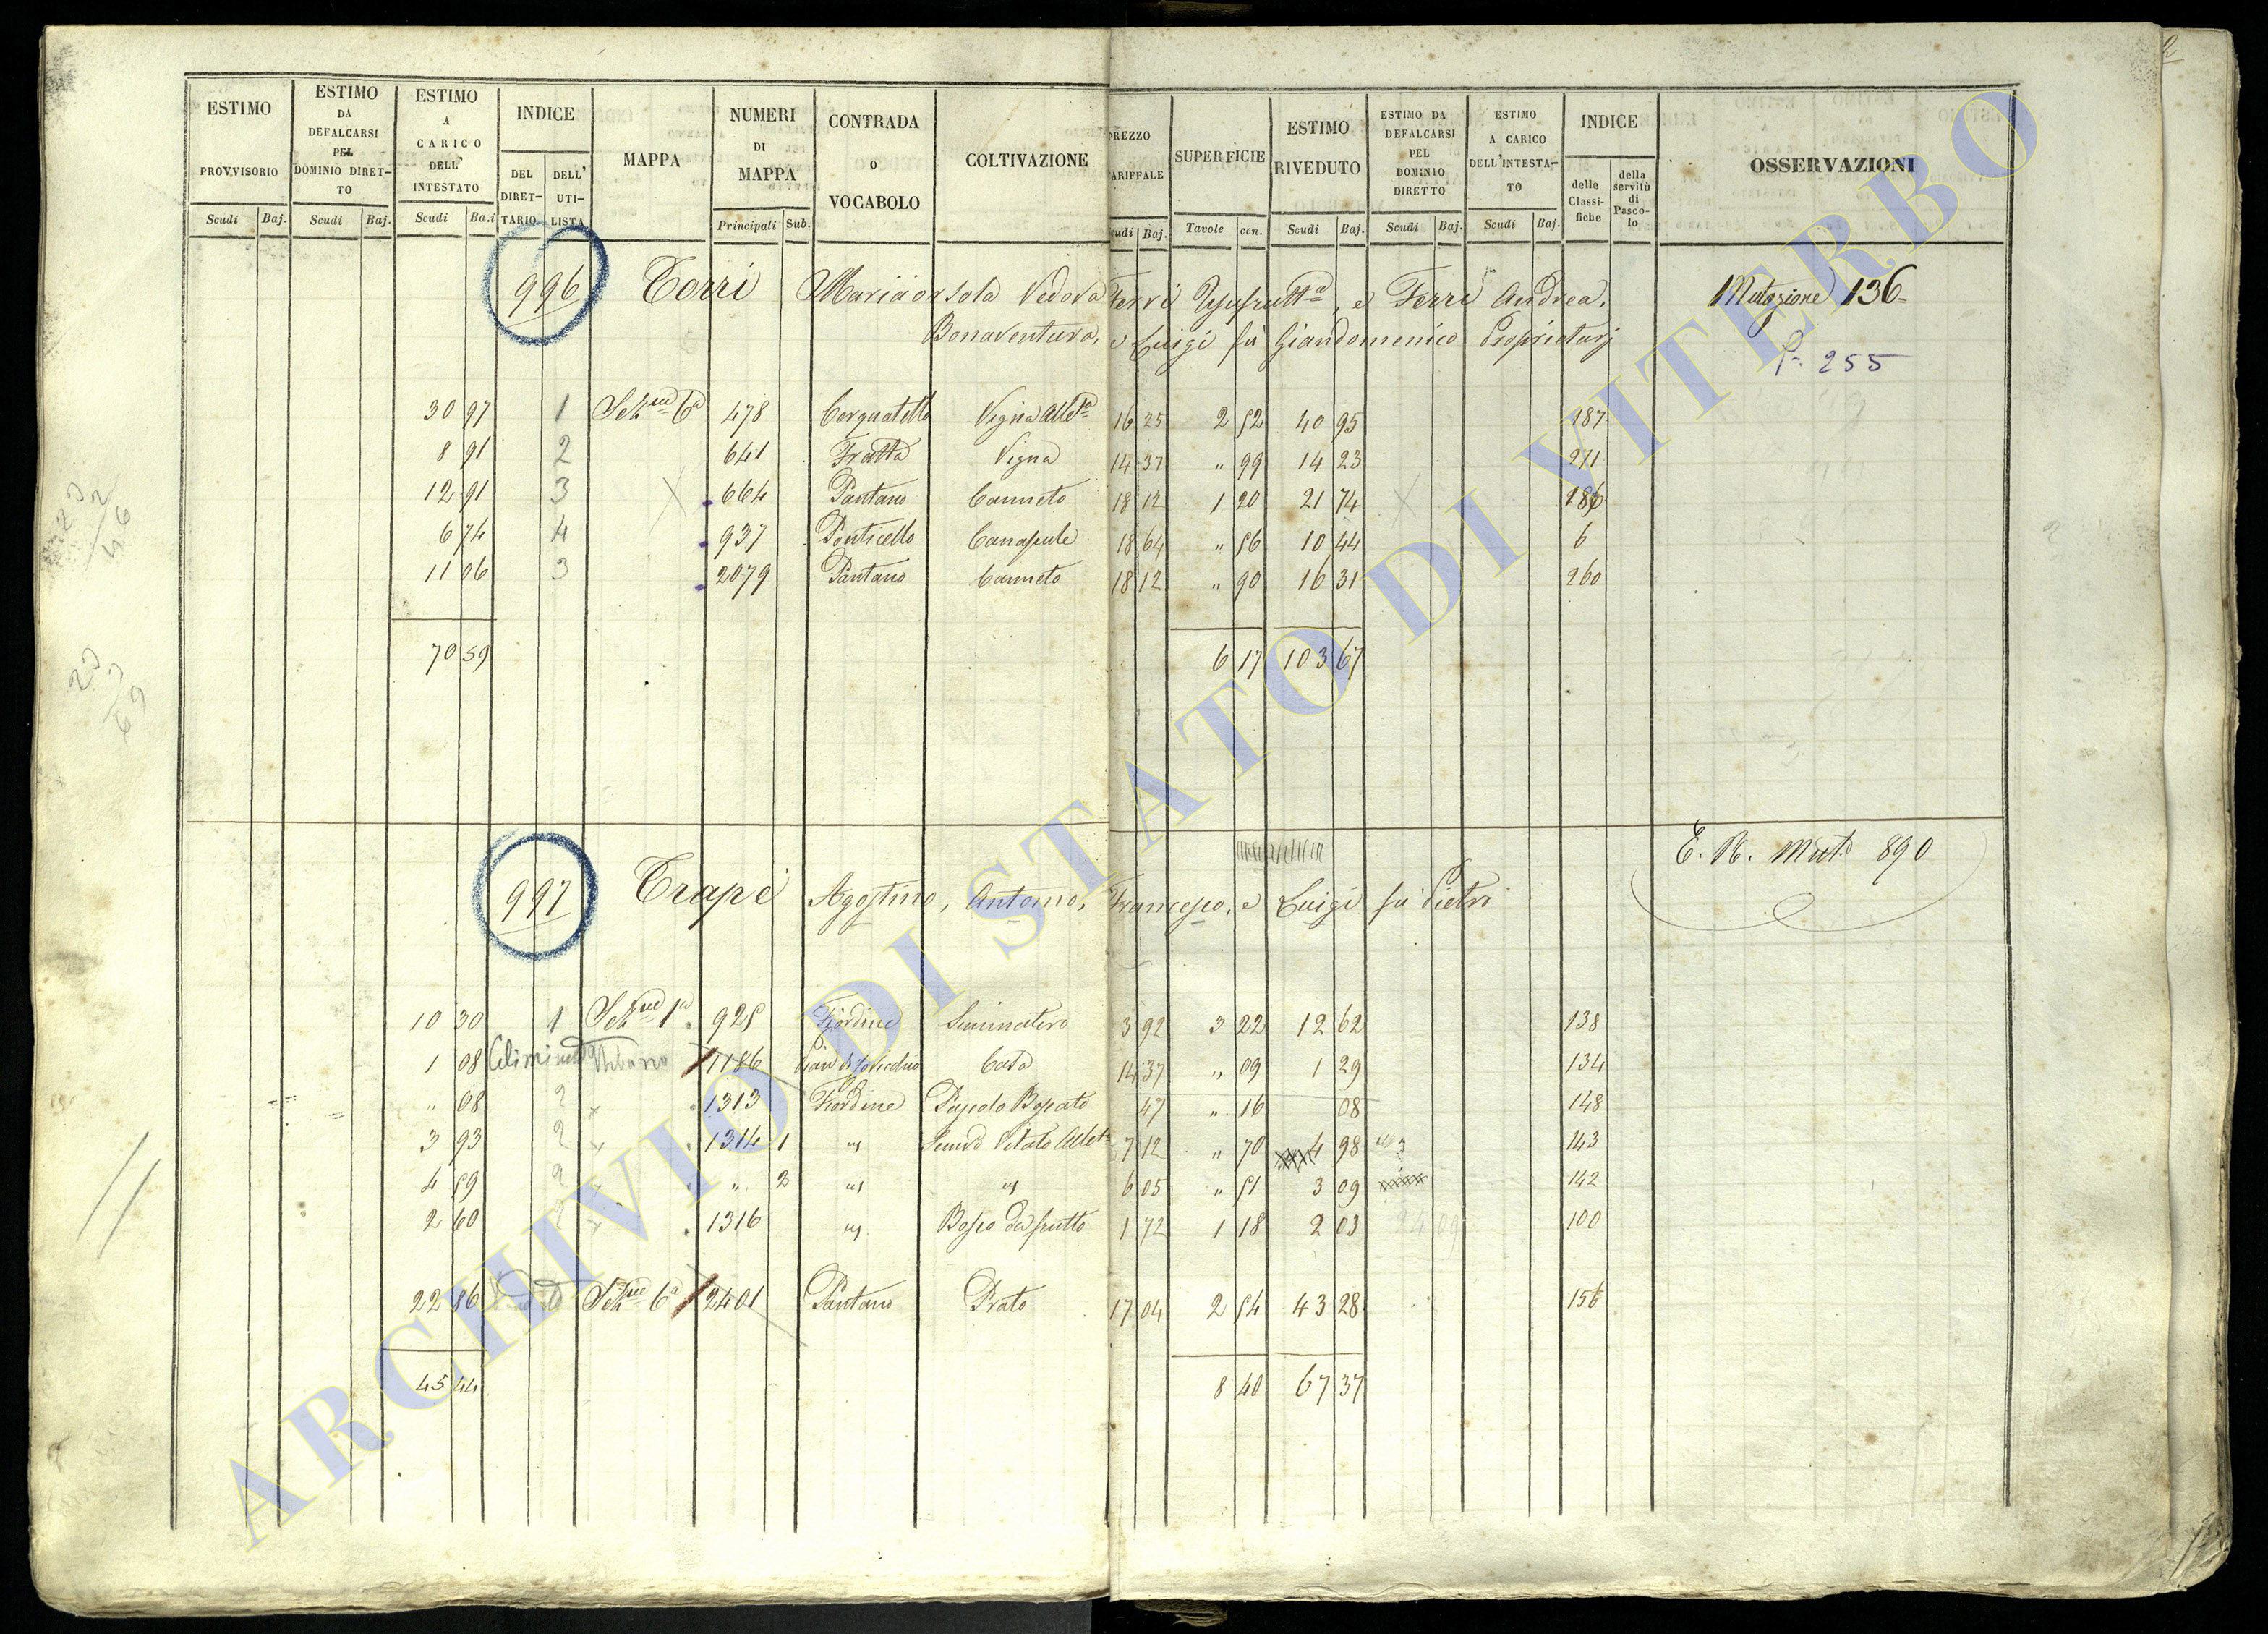 ESTIMO PROVVISORIO Scudi Baj.
ESTIMO DA DEFALCARSI PEL DOMINIO DIRETTO Scudi Baj.
ESTIMO A CARICO DELL' INTESTATO Scudi Baj.
INDICE DEL DIRETTARIO DELL' UTILISTA
MAPPA
NUMERI DI MAPPA Principali Sub.
CONTRADA o VOCABOLO
COLTIVAZIONE
PREZZO TARIFFALE Scudi Baj.
SUPERFICIE Tavole cen.
ESTIMO RIVEDUTO Scudi Baj.
ESTIMO DA DEFALCARSI PEL DOMINIO DIRETTO Scudi Baj.
ESTIMO A CARICO DELL'INTESTATO Scudi Baj.
INDICE delle Classifiche della servitù di Pascolo
OSSERVAZIONI
996 Torri Maria orsola Vedova Ferri Ususfrutt.a, e Ferri Andrea, Mutazione 136
Bonaventura, e Luigi fu Giandomenico Proprietarj P. 255
30 97 1 Sez.ne 6a 478 Cerquatello Vigna All.ta 16 25 2 52 40 95 187
8 91 2 641 Fratta Vigna 14 37 " 99 14 23 271
12 91 3 664 Pantano Canneto 18 12 1 20 21 74 186
6 74 4 937 Ponticello Canapule 18 64 " 56 10 44 6
11 06 3 2079 Pantano Canneto 18 12 " 90 16 31 260
70 59 6 17 103 67
E. R. Mut.e 890
997 Trapè Agostino, Antonio, Francesco, e Luigi fu Pietro
10 30 1 Sez.ne 1a 925 Fiordine Seminativo 3 92 3 22 12 62 138
1 08 Urbano 1186 Casa 14 37 " 09 1 29 134
" 08 2 " 1313 Fiordine Pascolo Boscato 47 " 16 08 148
3 93 2 " 1314 1 " Semvo Vitato Allet. 7 12 " 70 4 98 143
4 59 2 " " 2 " " 6 05 " 51 3 09 142
2 60 2 " 1316 " Bosco da frutto 1 72 1 18 2 03 100
22 86 Sez.ne 6a 2401 Pantano Prato 17 04 2 54 43 28 156
45 44 8 40 67 37
ARCHIVIO DI STATO DI VITERBO